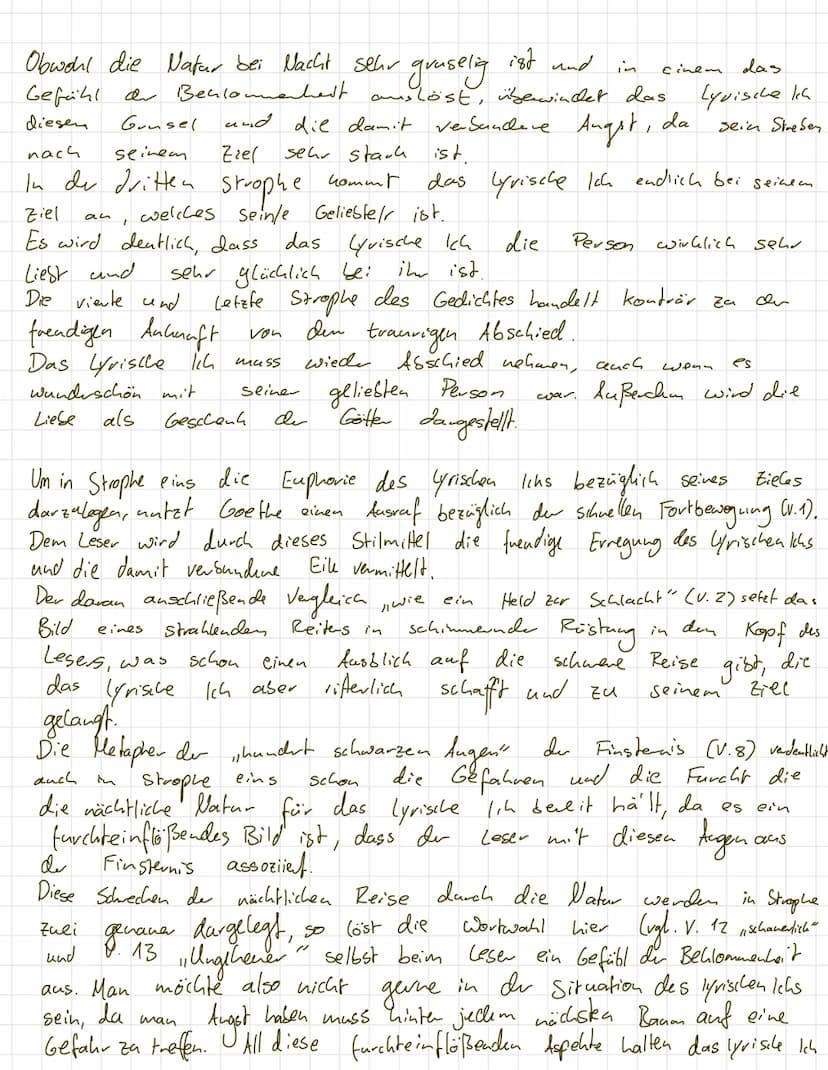 Obwohl die Natur bei Nacht sehr gruselig ist und in einem das
Gefühl der Beklommenheit auslöst, überwindet das Lyrische Ich
diesen Grusel und die damit verbundene Angst, da sein Streben
nach seinem Ziel sehr stark ist.
In der dritten Strophe kommt das lyrische Ich endlich bei seinem
Ziel an, welches sein/e Geliebte/r ist.
Es wird deutlich, dass das lyrische Ich die Person wirklich sehr
liebt und sehr glücklich bei ihr ist.
Die vierte und letzte Strophe des Gedichtes handelt konträr zu der
freudigen Ankunft von dem traurigen Abschied.
Das Lyrische Ich muss wieder Abschied nehmen, auch wenn es
wunderschön mit seiner geliebten Person war. Außerdem wird die
Liebe als Geschenk der Götter dargestellt.
Um in Strophe eins die Euphorie des lyrischen Ichs bezüglich seines Zieles
darzulegen, nutzt Goethe einen Ausruf bezüglich der schnellen Fortbewegung (V.1).
Dem Leser wird durch dieses Stilmittel die freudige Erregung des lyrischen Ichs
und die damit verbundene Eile vermittelt.
Der daran anschließende Vergleich „wie ein Held zur Schlacht" (V. 2) setzt das
Bild eines strahlenden Reiters in schimmernder Rüstung in den Kopf des
Lesers, was schon einen Ausblick auf die schwere Reise gibt, die
das lyrische Ich aber ritterlich schafft und zu seinem Ziel
gelangt.
Die Metapher der „hundert schwarzen Augen" der Finsternis (V. 8) verdeutlicht
auch in Strophe eins schon die Gefahren und die Furcht die
die nächtliche Natur für das lyrische Ich bereit hält, da es ein
furchteinflößendes Bild ist, dass der Leser mit diesen Augen aus
der Finsternis assoziiert.
Diese Schrecken der nächtlichen Reise durch die Natur werden in Strophe
zwei genauer dargelegt, so löst die Wortwahl hier (vgl. V. 12 „schauerlich"
und V. 13 „Ungeheuer" selbst beim Leser ein Gefühl der Beklommenheit
aus. Man möchte also nicht gerne in der Situation des lyrischen Ichs
sein, da man Angst haben muss hinter jedem nächsten Baum auf eine
Gefahr zu treffen. All diese furchteinflößenden Aspekte halten das lyrische Ich